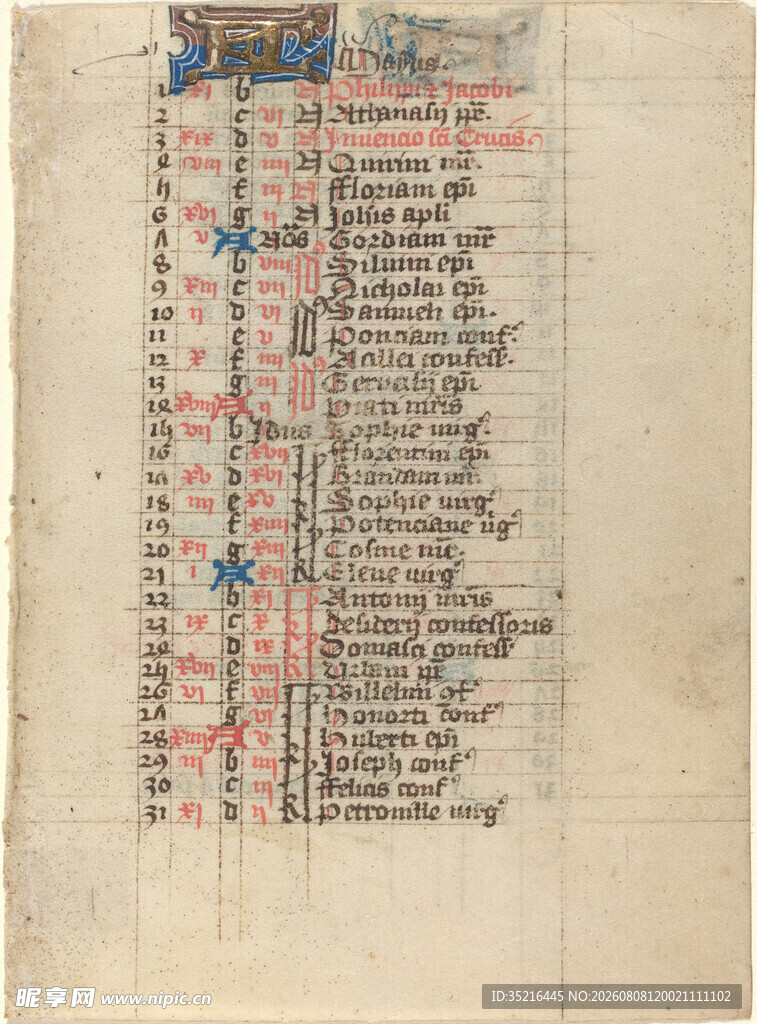 Maius
1 xi b A Philippi & Jacobi
2 c vi A Athanasij pp̄e.
3 xix d v A Inuencio sc̄i Crucis
4 viii e iiii A Quirini mr̄.
5 f iii A ffloriani ep̄i
6 xvi g ii A Joh̄is apli
7 v A Nōs Gordiani mr̄
8 b viii Siluini ep̄i
9 xiii c vii Nicholai ep̄i
10 ii d vi ep̄i.
11 e v Ponciani conf
12 x f iiii Acillei confess.
13 g iii Geruasij ep̄i
14 xviii A ii mr̄is
15 vii b Jdus Sophie uirg
16 c xvii fflorentini ep̄i
17 xv d xvi Brandani mr̄
18 iiii e xv Sophie uirg
19 f xiiii Potenciane ūg
20 xii g xiii Cosme mr̄.
21 i A xii Elene uirg
22 b xi Antonij mr̄is
23 ix c x desiderij confessoris
24 d ix Domasci confess
25 xvii e viii Vrbani pp̄
26 vi f vii Willelmi 9f
27 g vi Honorti conf
28 xiiii A v Huberti ep̄i
29 iii b iiii Joseph conf
30 c iii ffelicis conf
31 xi d ii Petronille uirg
昵享网 www.nipic.cn
ID:35216445 NO:20260808120021111102